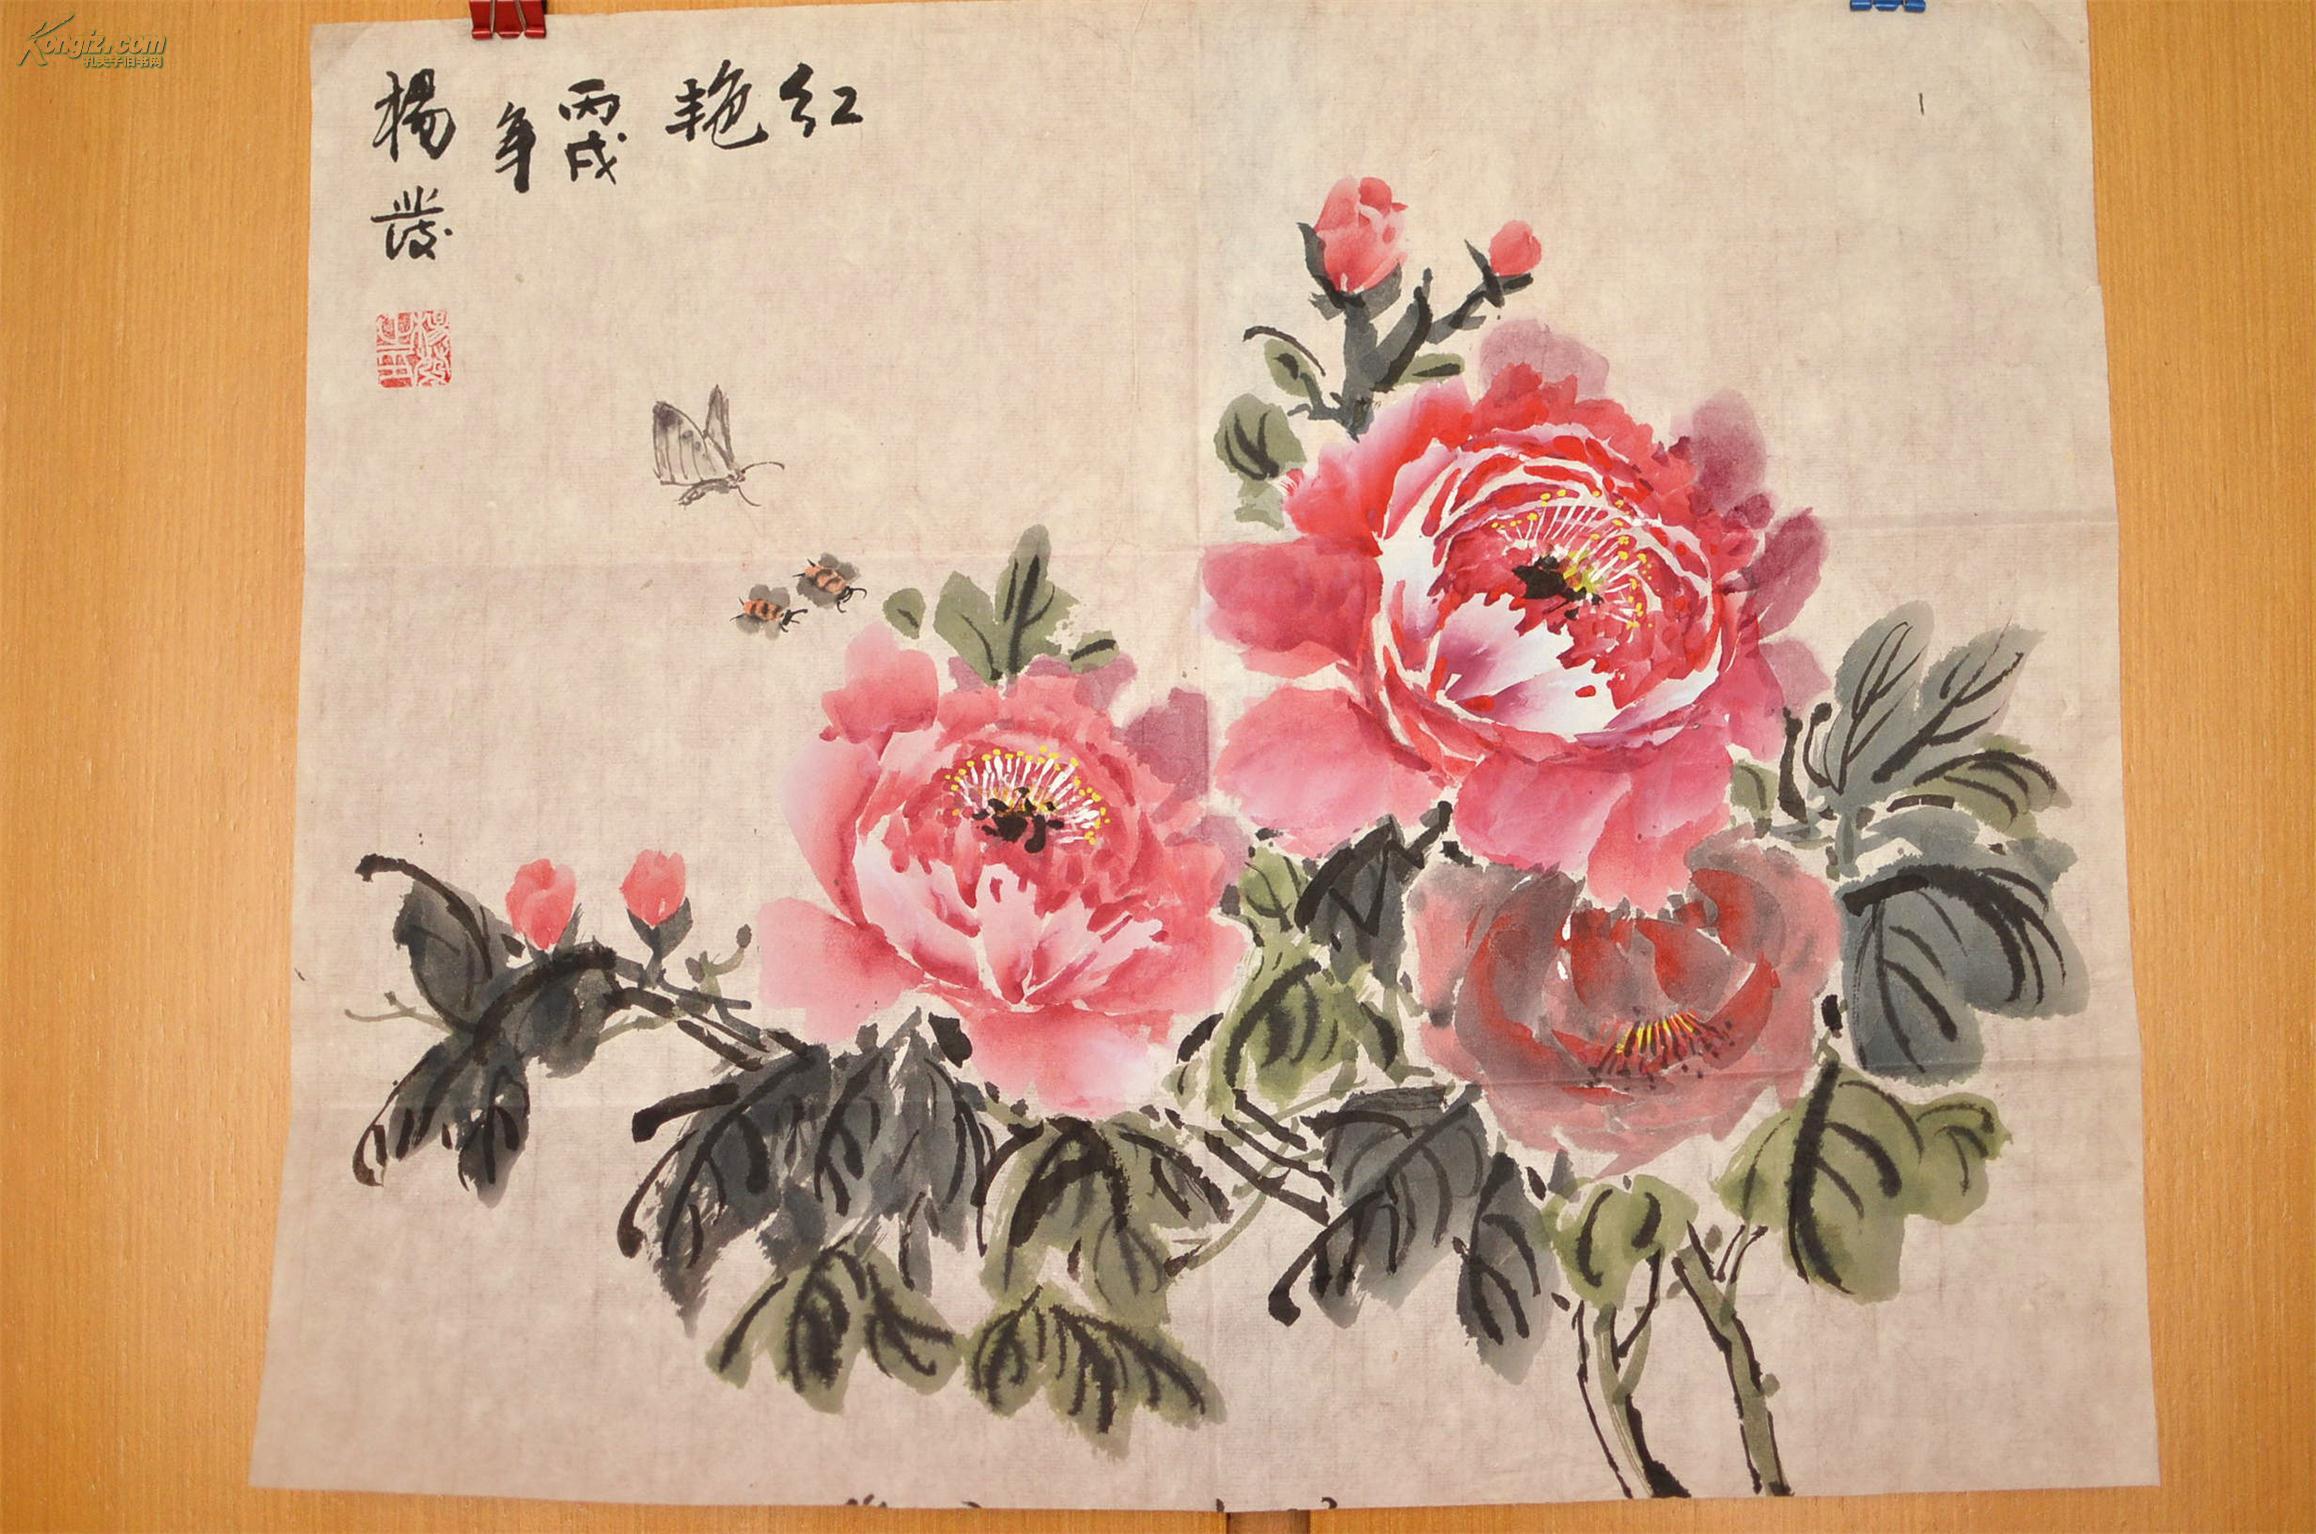 Kongfz.com
孔夫子旧书网
红艳
丙戌
年
楊